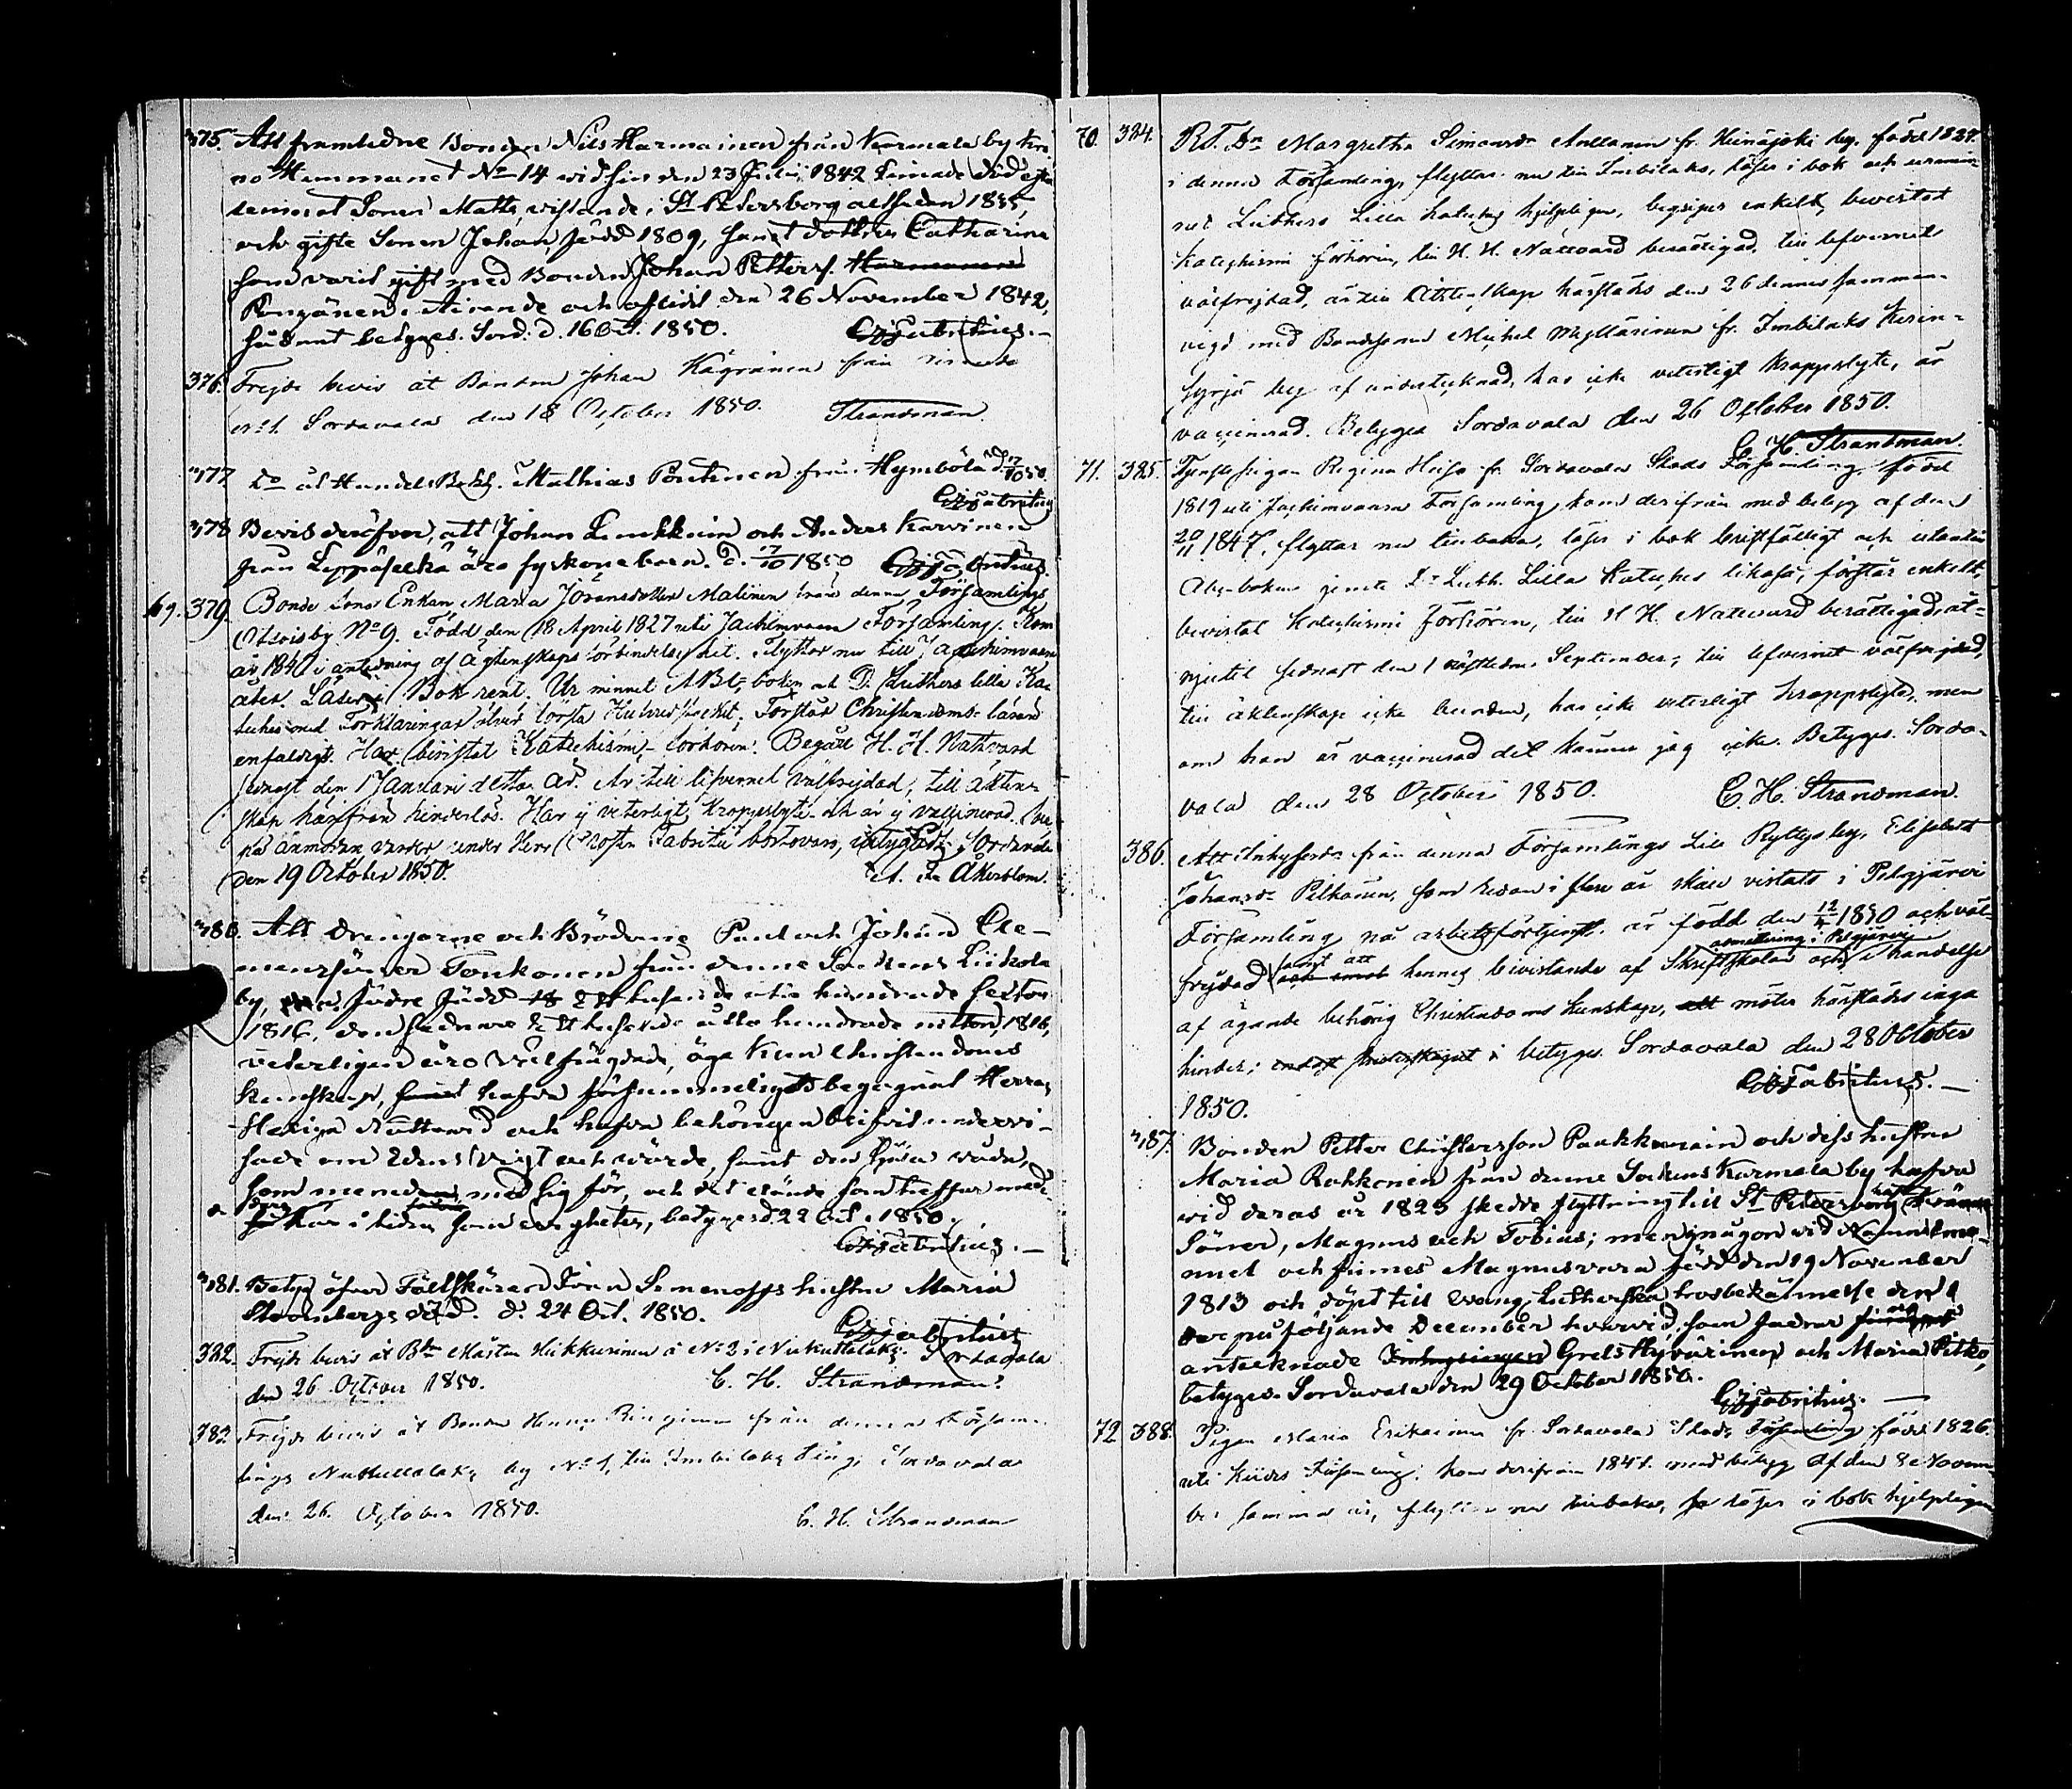 375. Att framledne Bonden Nils Harmainen från Kurmala by
no Hemmanet No 14 wid sin den 23 Julii 1842 timade död
lemnat Sonen Matts, vistande i St Petersborg allsedan 1835,
och gifte Sonen Johan, född 1809, samt dottren Catharina
som varit gift med Bonden Johan Petters.
Airanne och aflidit den 26 November 1842,
sådant betyges. Sord. d. 16 Oct. 1850. Fabritius.
376. Frejde bevis åt Bonden Johan Kägränen från
No 1. Sordavala den 18 October 1850. Strandman
377 Do åt Handels Mathias Pöntinen från Hymbölä d. 17/10 50.
Fabritius
378 Bevis deröfver, att Johan och Anders Karvinen
från Leppäselkä äro syskonebarn. d. 17/10 1850 Fabritius.
69. 379. Bonde Sons Enkan Maria Jöransdotter Malinen från denna Församlings
Otsois by No 9. Född den 18 April 1827 uti Jackimvaara Församling. Kom
år 1840 i anledning af ägtenskaps förbindelse hit. Flyttar nu till Jackimvaara
åter. Läser i Bok rent. Ur minnet ABC-boken och D. Luthers lilla Ka-
teches med Förklaringar öfver första Hufvudstycket, Förstår Christendoms-läran
enfaldigt. Har bevistat Katechismi-förhören. Begått H. H. Nattvard
senast den 1 Januari detta år. Är till lefvernet välfrejdad, till äkten-
skap härifrån hinderlös. Har ej veterligt kroppslyte och är ej vaccinerad.
på anmodan under Herr Prosten Fabritii bortovaro, Sordavala
den 19 October 1850. A. Åkerblom.
380. Att Drengarne och Bröderne Paul och Johan Cle-
menssöner Tonkonen från denne Sockens Liikola
by, den födre född Ett tusende otta hundrade sexton
1816, den sednare Ett tusende otta hundrade nitton,
veterligen äro välfrägdade, äga Christendoms
kunskap, hafva försummeligt begagnat Herrans
Heliga Nattvard och hafva behörigen blifvit undervi-
sade om Edens vigt och wärde, samt den wåda,
som meneden med sig för, och det elände som träffar mene-
daren i tiden som evigheten, betyges d. 22 Oct. 1850.
Fabritius.
381. Betyg öfver Fältskären Iwan Semenoffs hustru Maria
Strömbergs död. d. 24 Oct. 1850.
Fabritius
382. Frejde bevis åt Bdn Mårten Hikkurinen å No 2 i Nukuttalaks. Sordavala
den 26 October 1850. C. H. Strandman.
383. Frejde bevis åt Bonden Henric från denna Försam-
lings Nukuttalaks by No 1, till Imbilaks ting; Sordavala
den 26 October 1850.
C. H. Strandman
70. 384. Margretha Simonsdr från Heinäjoki by. född 1827.
i denna Församling, flyttar nu till Imbilaks, läser i bok och ur min-
net Luthers Lilla kateches hjelpligen, begriper enkelt, bevistat
Katechismi förhören, till H. H. Nattvard berättigad, till lefvernet
välfrejdad, är till Äktenskap härstädes den 26 dennes samman-
vigd med Bondesonen Michel fr. Imbilaks
Syrjä by af undertecknad, har icke veterligt kroppslyte, är
vaccinerad. Betyges Sordavala den 26 October 1850.
C. H. Strandman.
71. 385. Tjenstepigan Regina fr Sordavala Stads Församling, född
1819 uti Jackimvaara Församling, kom derifrån med betyg af den
20/11 1847, flyttar nu tillbaka, läser i bok bristfälligt och utantill
Abc-boken jemte Dr Luth. Lilla Kateches likaså, förstår enkelt,
bevistat Katechismi förhören, till H. H. Nattvard berättigad, åt-
njutit sednast den 1 September, till lefvernet välfrejdad,
till äktenskap icke bunden, har icke veterligt kroppslyte, men
om hon är vaccinerad det känner jag icke. Betyges. Sorda-
vala den 28 October 1850. C. H. Strandman.
386. Att Inhysesdr från denna Församlings Lilla Rytty by, Elisabeth
Johansdr Pitkänen, som redan i flere år skall vistats i Pelgjärvi
Församling på arbetsförtjenst. är född den 12/4 1850 och väl-
frejdad samt att hennes bevistande af Skriftskolan och admittering i Pelgjärvi i händelse
af ägande behörig Christendoms kunskap, möter härstädes inga
hinder; betyges Sordavala den 28 October
Fabritius.
1850.
387. Bonden Petter Christersson och dess hustru
Maria Rohkonen från denne Sockens Kurmala by hafva
wid deras år 1823 skedde flyttning till St Petersborg haft
Söner, Magnus och Tobias; men någon wid Namn Ema-
nuel och finnes Magnus vara född den 19 November
1813 och döpt till Evang. Lutherska trosbekännelse den 1
der påföljande December hvarvid som faddrar
antecknade Grels Hyvärinen och Maria Pitko,
betyges. Sordavala den 29 October 1850.
Fabritius.
72 388. Pigan Maria Erikainen fr. Sordavala Stads Församling född 1826.
uti Kides Församling; kom derifrån 1841. med betyg af den 8 Novem-
ber samma år, flyttar nu tillbaka, läser i bok hjelpligen